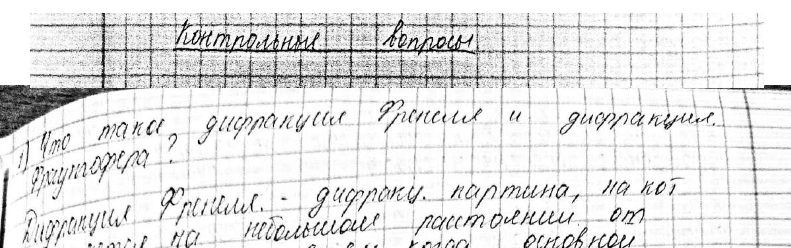 Контрольные вопросы
1) Что такое дифракция Френеля и дифракция
Фраунгофера?
Дифракция Френеля. - дифракц. картина, на кот
на небольшом расстоянии от
когда основной